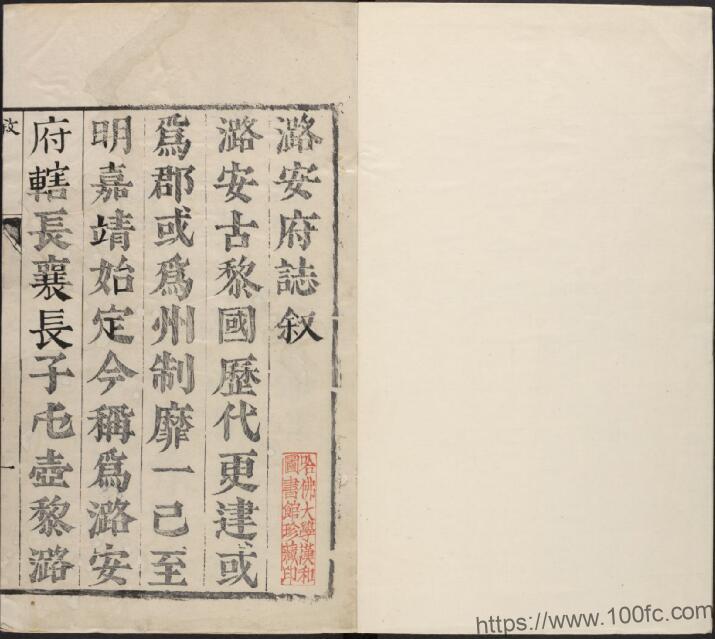 潞安府誌叙
潞安古黎國歷代更建或
爲郡或爲州制靡一己至
明嘉靖始定今稱爲潞安
府轄長襄長子屯壺黎潞
叙
一
哈佛大學漢和
圖書館珍藏印
https://www.100fc.com